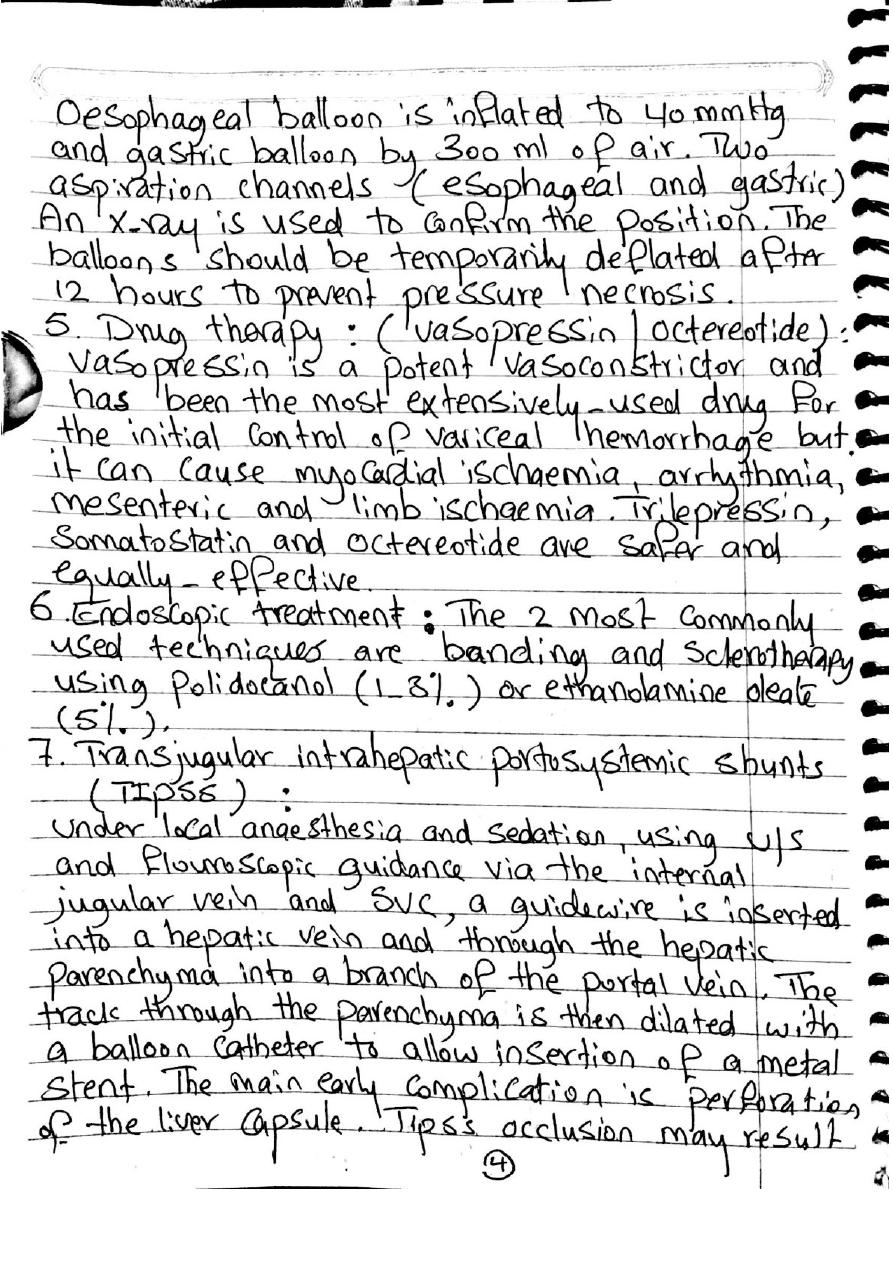 Oesophageal balloon is inflated to 40 mmHg
and gastric balloon by 300 ml of air. Two
aspiration channels (esophageal and gastric)
An x-ray is used to confirm the position. The
balloons should be temporarily deflated after
12 hours to prevent pressure necrosis.
5. Drug therapy : (vasopressin / octereotide) :
Vasopressin is a potent vasoconstrictor and
has been the most extensively-used drug for
the initial control of variceal hemorrhage but
it can cause myocardial ischaemia, arrhythmia,
mesenteric and limb ischaemia. Trilepressin,
Somatostatin and octereotide are safer and
equally-effective.
6. Endoscopic treatment : The 2 most commonly
used techniques are banding and Sclerotherapy
using polidocanol (1-3%.) or ethanolamine oleate
(5%.).
7. Transjugular intrahepatic portosystemic shunts
(TIPSS) :
under local anaesthesia and sedation, using U/S
and flouroscopic guidance via the internal
jugular vein and SVC, a guidewire is inserted
into a hepatic vein and through the hepatic
parenchyma into a branch of the portal vein. The
track through the parenchyma is then dilated with
a balloon catheter to allow insertion of a metal
stent. The main early complication is perforation
of the liver capsule. Tipss occlusion may result
4